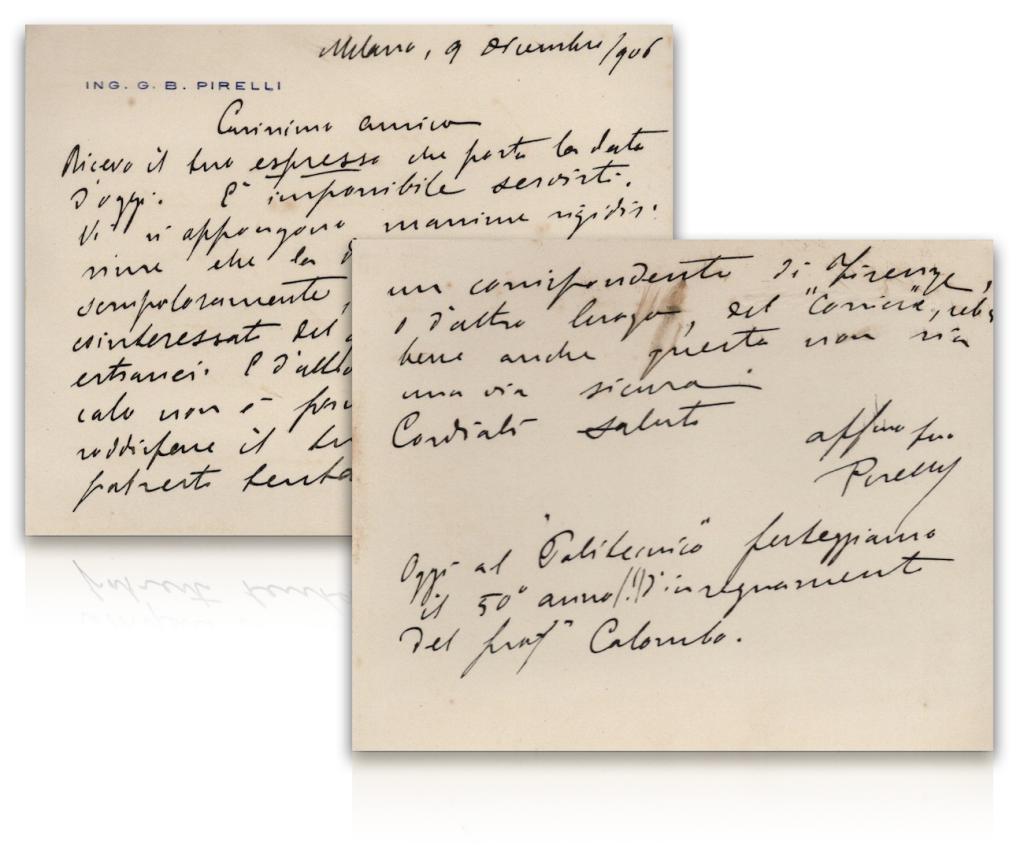 Milano, 9 dicembre/906
ING. G. B. PIRELLI
Carissimo amico
Ricevo il tuo espresso che porta la data
d'oggi. È impossibile servirti.
Vi si oppongono massime rigidis-
sime che la
scrupolosamente,
cointeressati del
estranei. E d'altro
calo non è
soddisfare il
potresti
un corrispondente di Firenze,
o d'altro luogo, del "Corriere", seb
bene anche questa non sia
una via sicura.
Cordiali saluti
affmo tuo
Pirelli
Oggi al "Politecnico" festeggiamo
il 50° anno (!) d'insegnamento
del prof. Colombo.